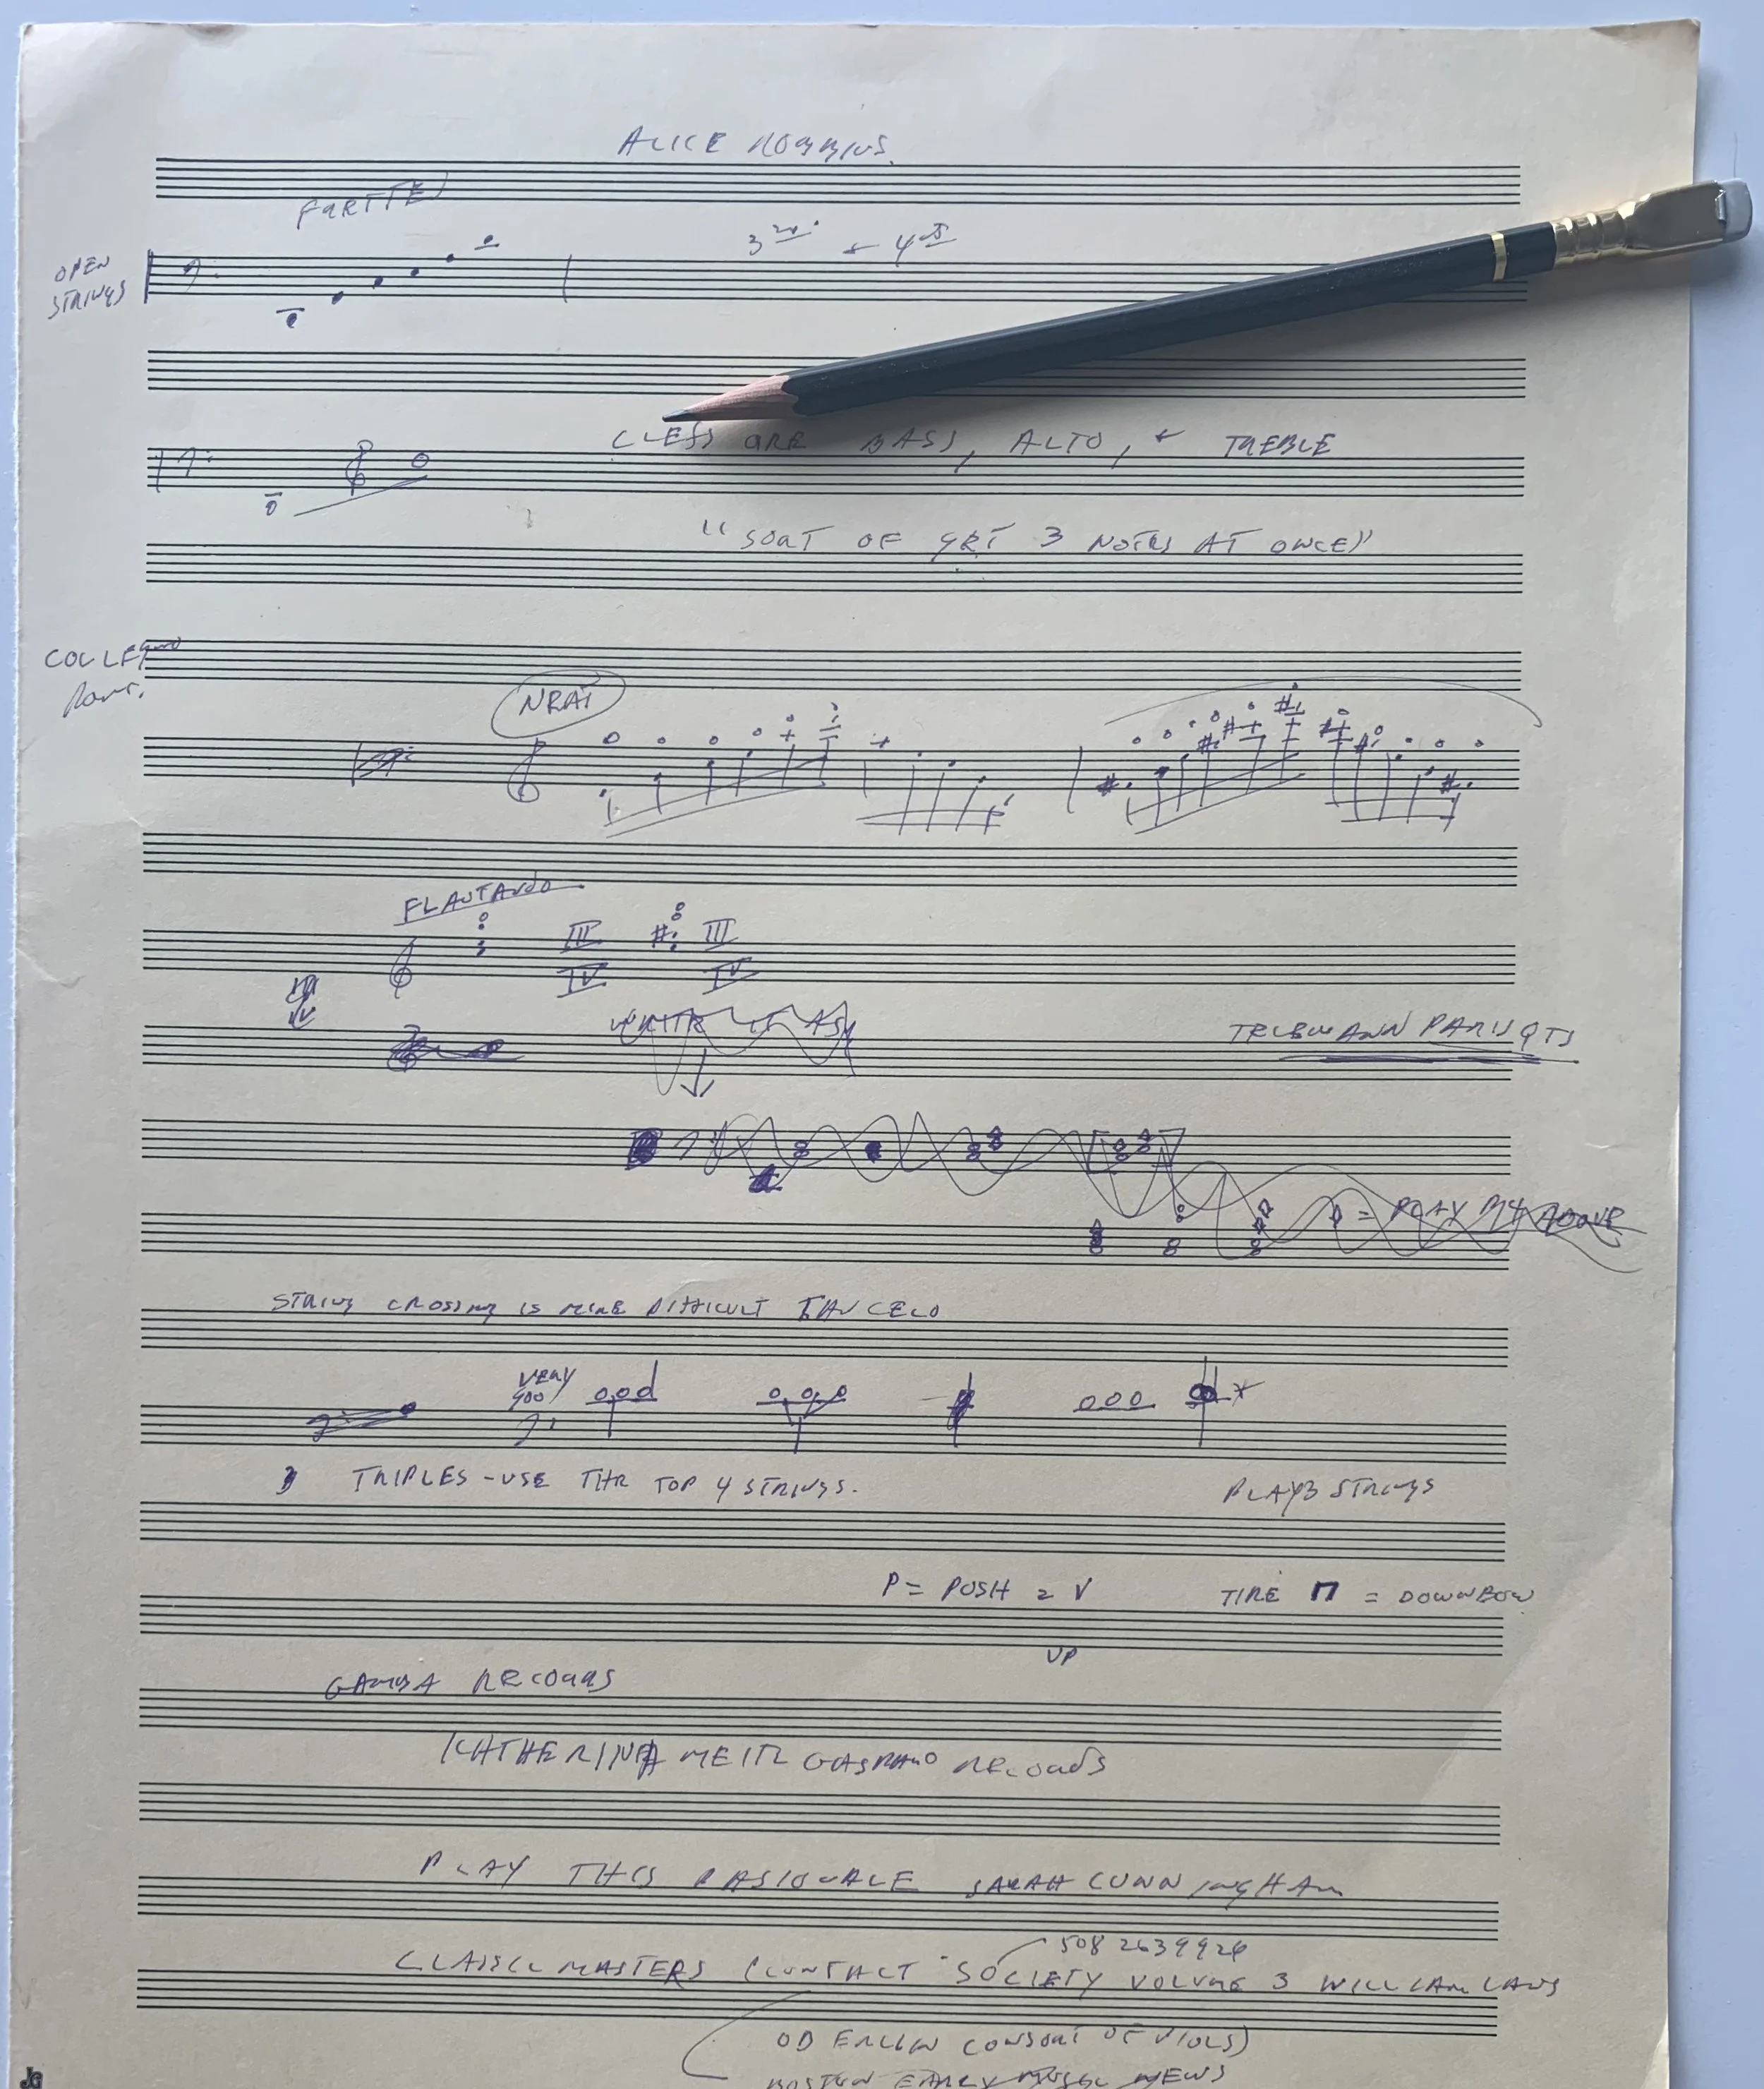 ALICE ROBBINS
OPEN
STRINGS
3RD. + 4TH
CLEFS ARE BASS, ALTO, + TREBLE
"SORT OF GET 3 NOTES AT ONCE"
NEAT
FLAUTANDO
III III
IV IV
TELEMANN PARIS QTS
= PLAY ABOVE
STRING CROSSING IS MORE DIFFICULT THAN CELO
VERY
GOOD
TRIPLES - USE THE TOP 4 STRINGS.
PLAY 3 STRINGS
P = PUSH = V TIRE = DOWNBOW
UP
GAMBA RECORDS
KATHERINA MEITZ GASPARO RECORDS
PLAY THIS PASSIONALE SARAH CUNNINGHAM
508 2639926
CLASSIC MASTERS CONTACT SOCIETY VOLUME 3 WILLIAM LAWS
CONSORT OF VIOLS)
BOSTON EARLY MUSIC NEWS
JG